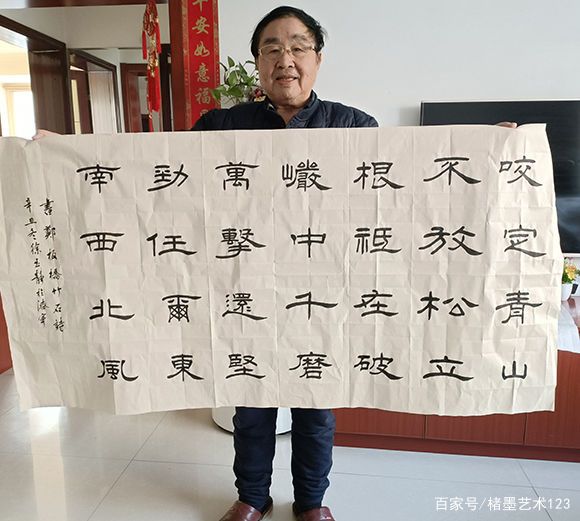 咬定青山
不放松立
根祗在破
巗中千磨
萬擊還堅
勁任爾東
南西北風
書鄭板橋竹石詩
辛丑冬徐玉靜於濟寧
安如意福
百家号/楮墨艺术123